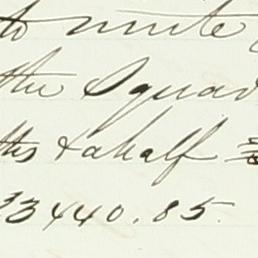 to unite
the Squad
ths & a half
33440.85.